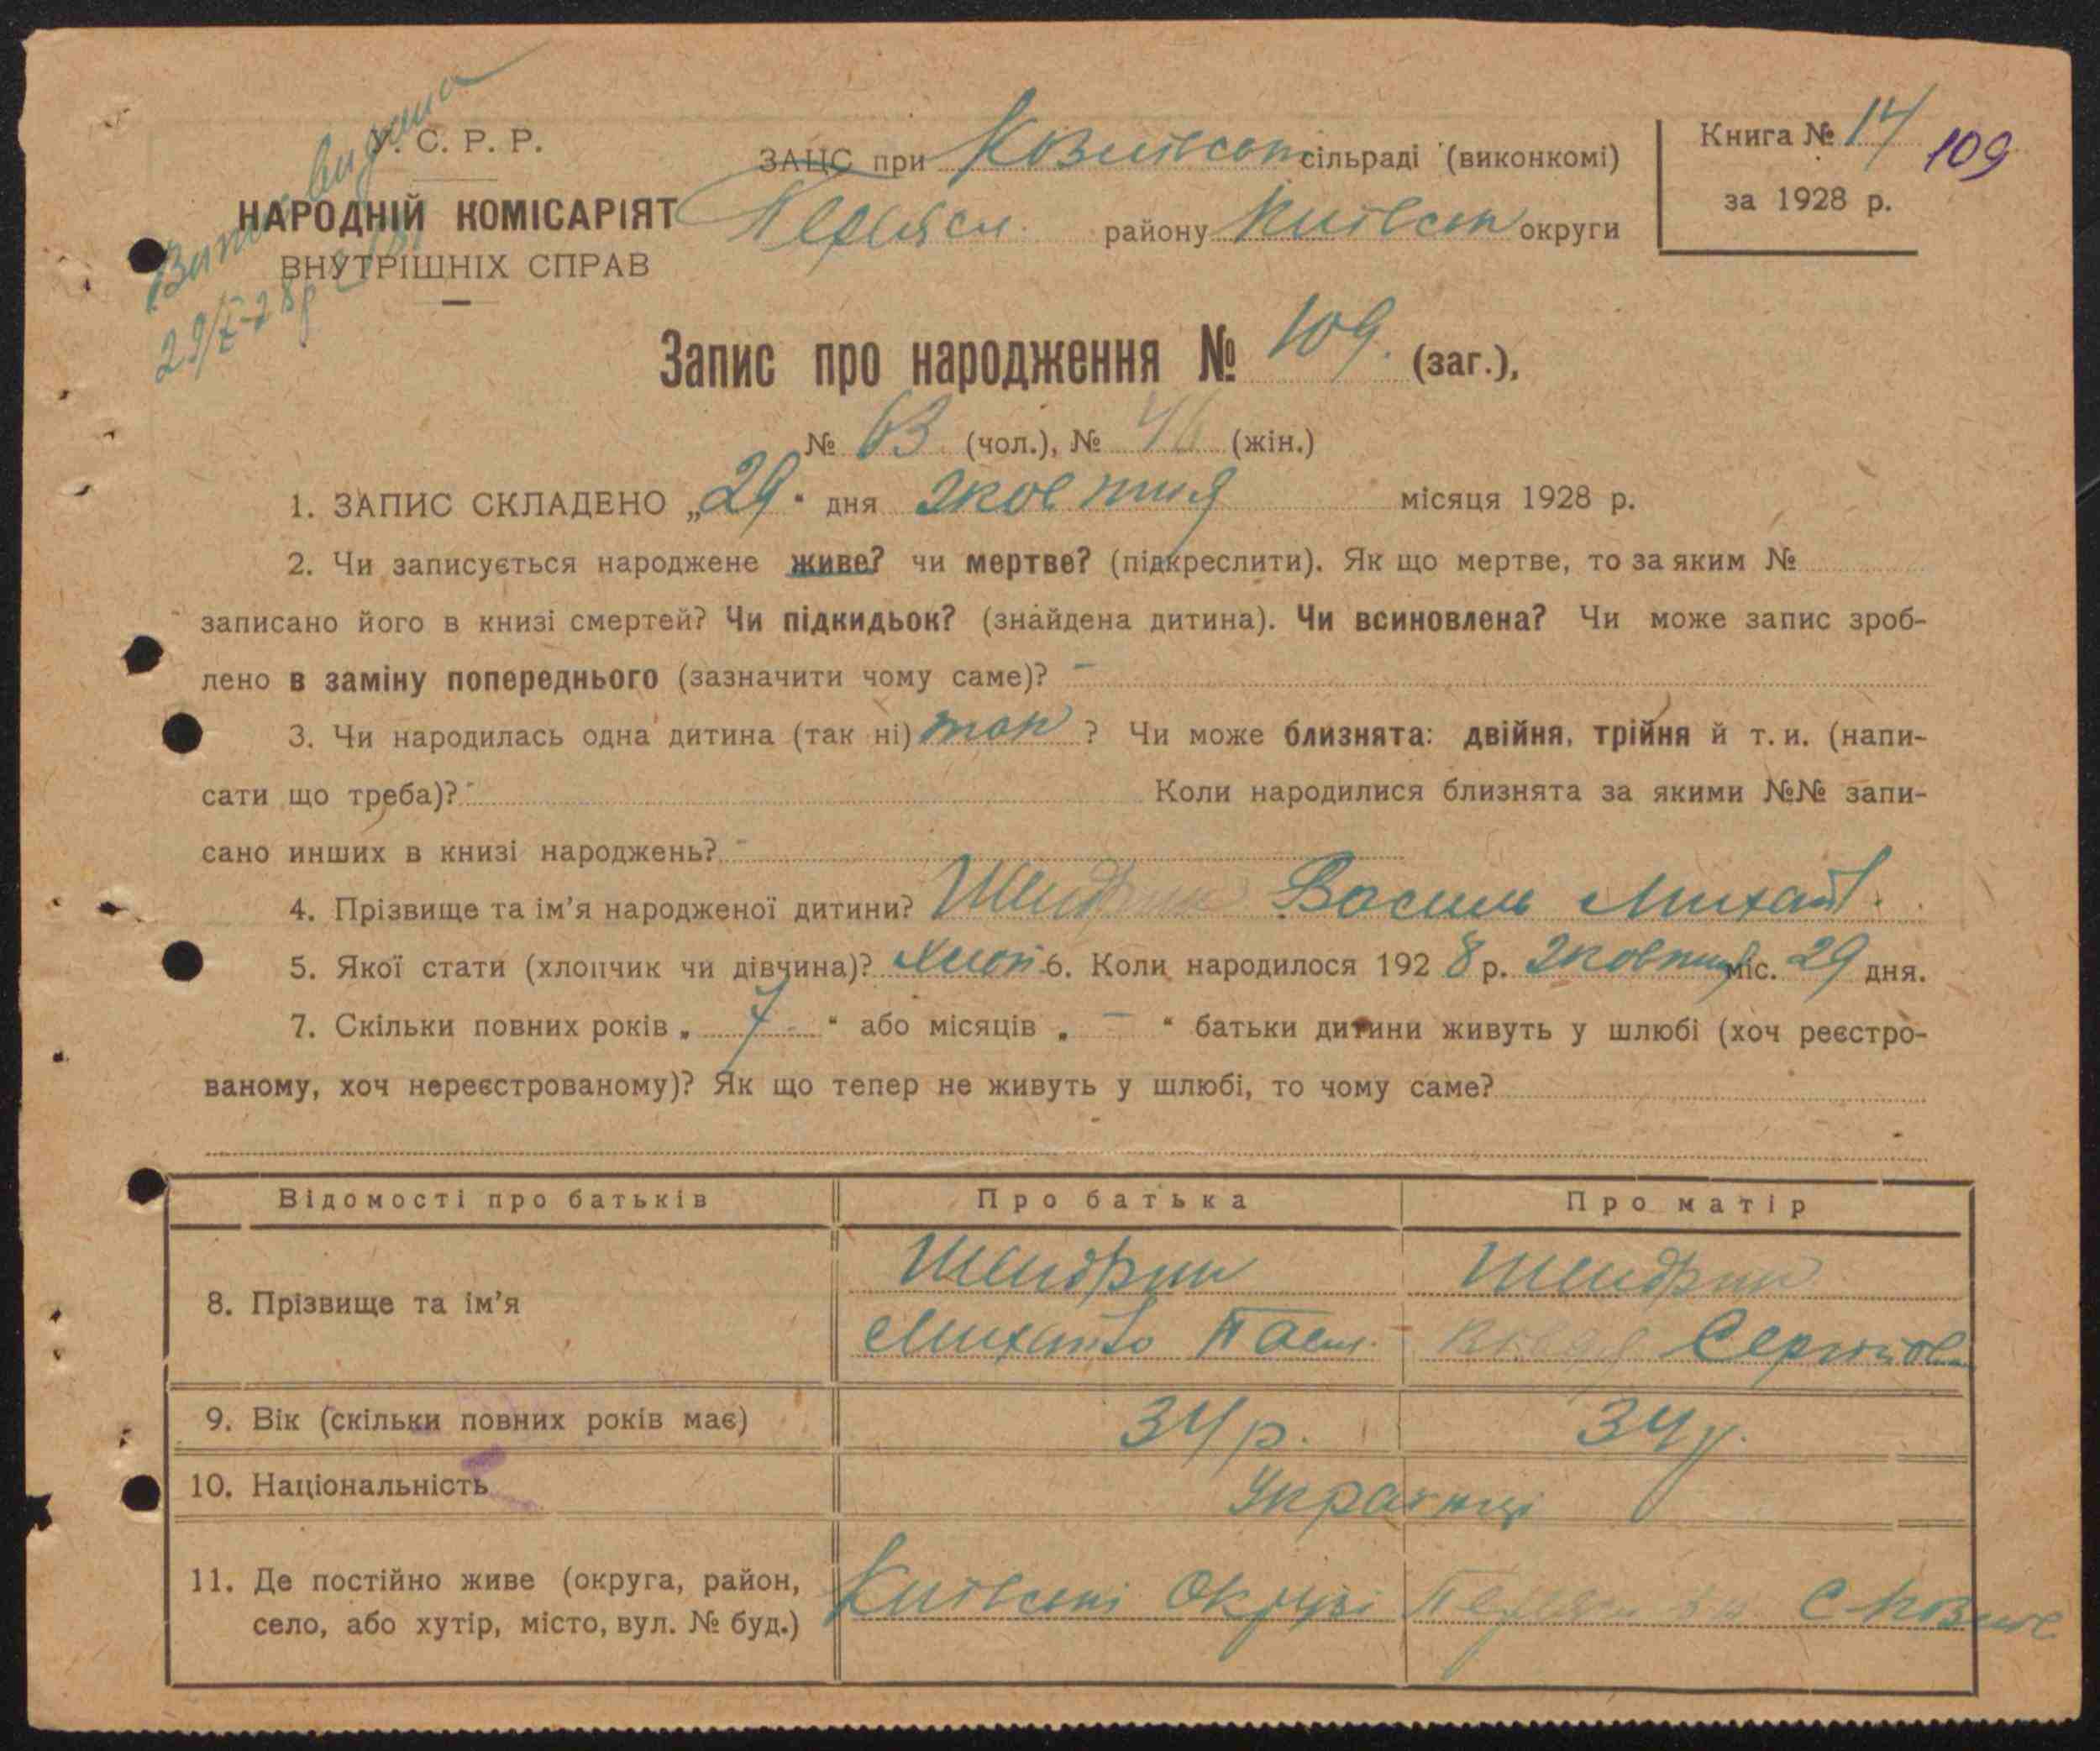 У. С. Р. Р.
НАРОДНІЙ КОМІСАРІЯТ
ВНУТРІШНІХ СПРАВ
ЗАЦС при сільраді (виконкомі)
Переясл. району Київськ округи
Книга № 14 109
за 1928 р.
Запис про народження № 109. (заг.),
№ 63 (чол.), № 46 (жін.)
1. ЗАПИС СКЛАДЕНО „29“ дня жовтня місяця 1928 р.
2. Чи записується народжене живе? чи мертве? (підкреслити). Як що мертве, то за яким №
записано його в книзі смертей? Чи підкидьок? (знайдена дитина). Чи всиновлена? Чи може запис зроб-
лено в заміну попереднього (зазначити чому саме)? –
3. Чи народилась одна дитина (так ні) так ? Чи може близнята: двійня, трійня й т. и. (напи-
сати що треба)? - Коли народилися близнята за якими №№ запи-
сано инших в книзі народжень? -
4. Прізвище та ім’я народженої дитини? Шендрик Василь Михайл.
5. Якої стати (хлопчик чи дівчина)? хлоп 6. Коли народилося 1928 р. жовтня міс. 29 дня.
7. Скільки повних років „ 7 “ або місяців „ – “ батьки дитини живуть у шлюбі (хоч реєстро-
ваному, хоч нереєстрованому)? Як що тепер не живуть у шлюбі, то чому саме?
Відомості про батьків Про батька Про матір
8. Прізвище та ім’я Шендрик Шендрик
Михайло
9. Вік (скільки повних років має) 34 р. 34 р.
10. Національність Українці
11. Де постійно живе (округа, район,
село, або хутір, місто, вул. № буд.) Київської Округи